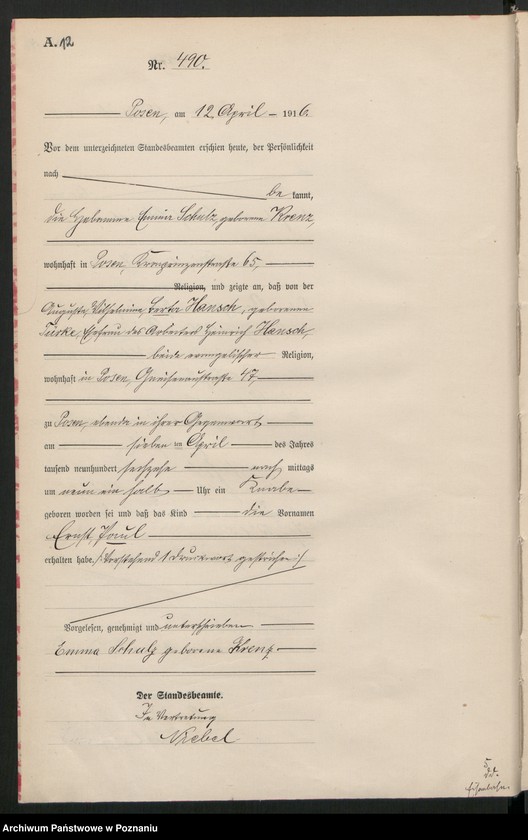 A. 12
Nr. 490.
Posen, am 12. April 1916.
Vor dem unterzeichneten Standesbeamten erschien heute, der Persönlichkeit
nach
be kannt,
die Hebamme Emma Schulz, geborene Krenz,
wohnhaft in Posen, Kronprinzenstraße 65,
Religion, und zeigte an, daß von der
Auguste Wilhelmine Berta Hansch, geborenen
Türke Ehefrau des Arbeiters Heinrich Hansch,
beide evangelischer Religion,
wohnhaft in Posen, Gneisenaustraße 47,
zu Posen, ebenda in ihrer Gegenwart
am sieben ten April des Jahres
tausend neunhundert sechzehn nach mittags
um neun ein halb Uhr ein Knabe
geboren worden sei und daß das Kind die Vornamen
Ernst Paul
erhalten habe. /: Vorstehend 1 Druckwort gestrichen :/
Vorgelesen, genehmigt und unterschrieben
Emma Schulz geborene Krenz
Der Standesbeamte.
In Vertretung
Archiwum Państwowe w Poznaniu